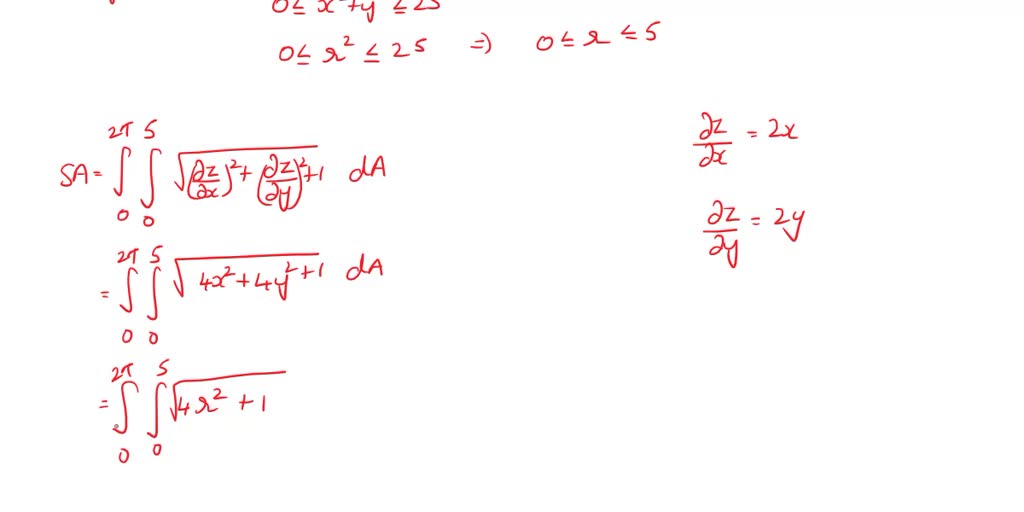 0 ≤ x²+y² ≤ 25
0 ≤ r² ≤ 25 ⇒ 0 ≤ r ≤ 5
SA = ∫₀^{2π} ∫₀^{5} √((∂z/∂x)² + (∂z/∂y)² + 1) dA
∂z/∂x = 2x
∂z/∂y = 2y
= ∫₀^{2π} ∫₀^{5} √(4x² + 4y² + 1) dA
= ∫₀^{2π} ∫₀^{5} √(4r² + 1)